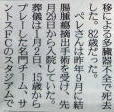 移による多臓器不全で死去
した。82歳だった。
ペレさんは昨年9月に結
腸腫瘍摘出手術を受け、先
月29日から入院していた。
葬儀は1月2日、15歳から
プレーした名門チーム、サ
ントスFCのスタジアムで